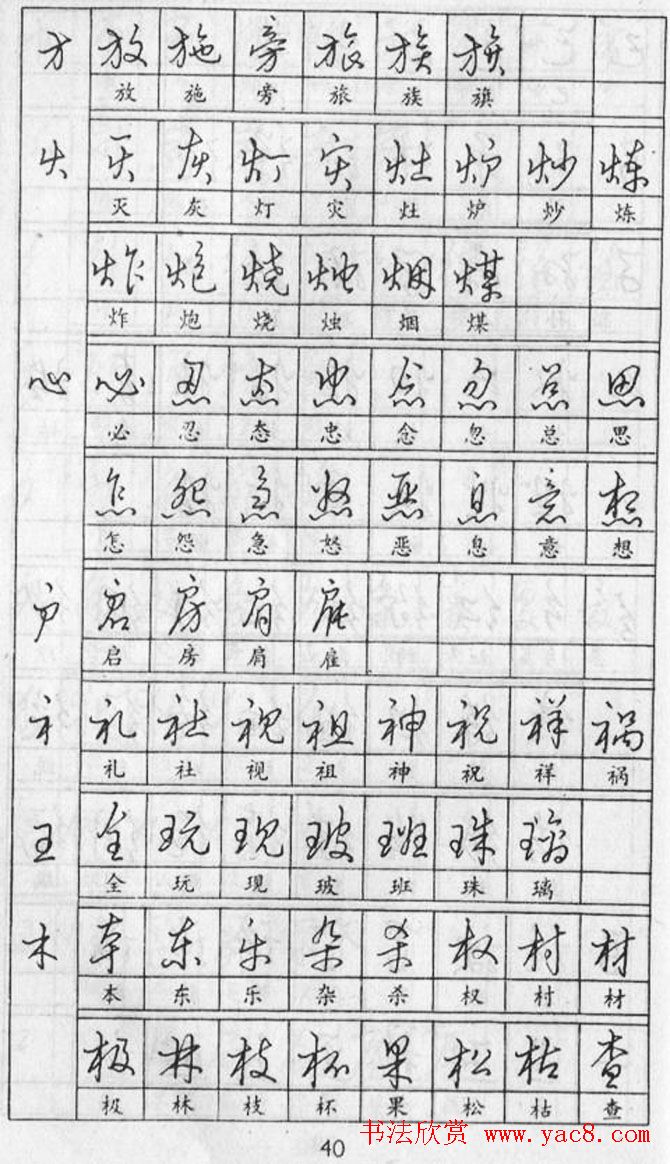 方 放 施 旁 旅 族 旗
放 施 旁 旅 族 旗
火 灭 灰 灯 灾 灶 炉 炒 炼
灭 灰 灯 灾 灶 炉 炒 炼
炸 炮 烧 烛 烟 煤
炸 炮 烧 烛 烟 煤
心 必 忍 态 忠 念 忽 总 思
必 忍 态 忠 念 忽 总 思
怎 怨 急 怒 恶 息 意 想
怎 怨 急 怒 恶 息 意 想
户 启 房 肩 雇
启 房 肩 雇
礻 礼 社 视 祖 神 祝 祥 祸
礼 社 视 祖 神 祝 祥 祸
王 全 玩 现 玻 班 珠 璃
全 玩 现 玻 班 珠 璃
木 本 东 乐 杂 杀 权 村 材
本 东 乐 杂 杀 权 村 材
极 林 枝 杯 果 松 枯 查
极 林 枝 杯 果 松 枯 查
40
书法欣赏 www.yac8.com